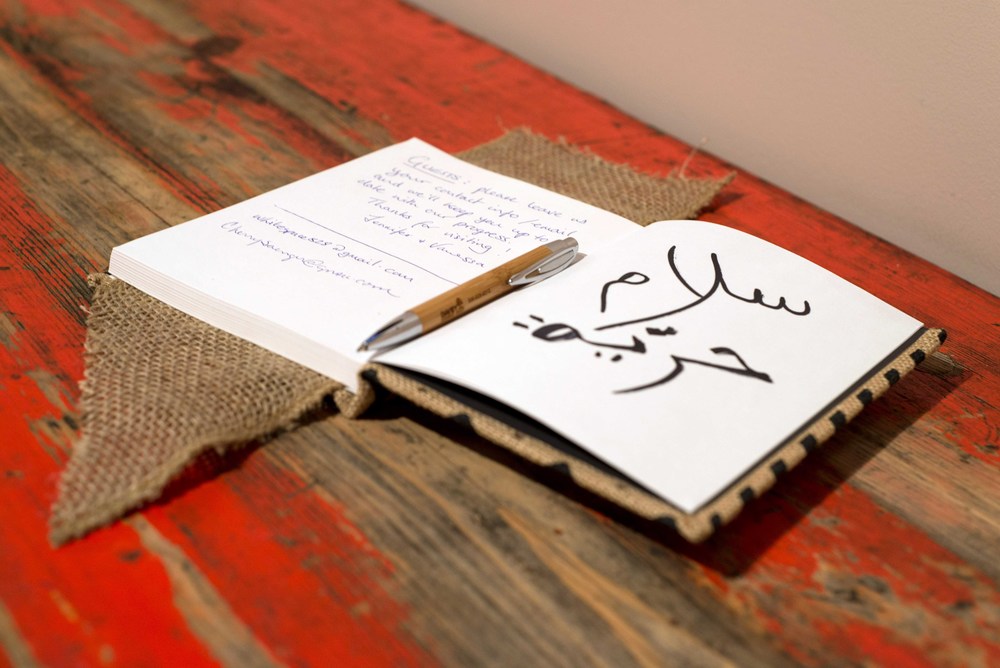 Guests: please leave us
your contact info/email
and we'll keep you up to
date with our progress.
Thanks for visiting!
Jennifer + Vanessa
سلام
حريّة